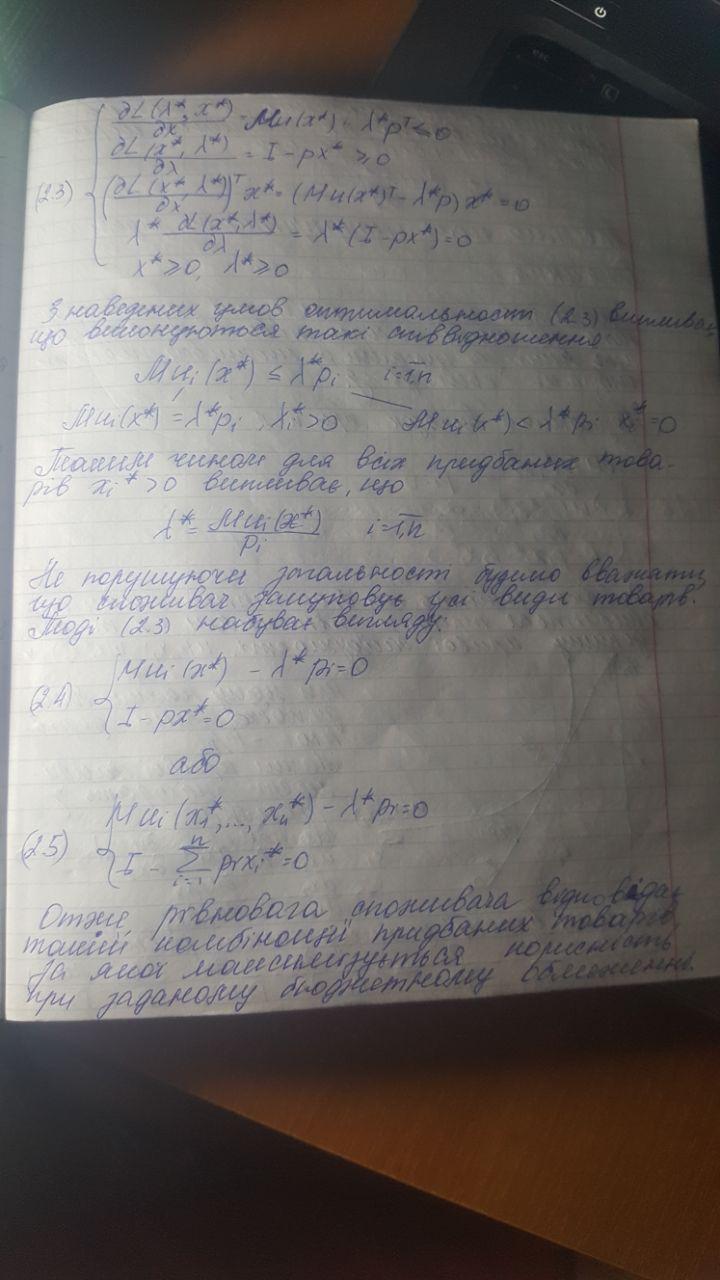 ∂L(λ*, x*)/∂x = Mu(x*) - λ*pᵀ ≤ 0
∂L(x*, λ*)/∂λ = I - px* ≥ 0
(2.3) (∂L(x*, λ*)/∂x)ᵀ x* = (Mu(x*)ᵀ - λ*p) x* = 0
λ* ∂L(x*, λ*)/∂λ = λ*(I - px*) = 0
x* ≥ 0, λ* ≥ 0
З наведених умов оптимальності (2.3) випливає
що виконуються такі співвідношення
Muᵢ(x*) ≤ λ*pᵢ i=1,n
Muᵢ(x*) = λ*pᵢ, xᵢ* > 0 Muᵢ(x*) < λ*pᵢ xᵢ* = 0
Таким чином для всіх придбаних това-
рів xᵢ* > 0 випливає, що
λ* = Muᵢ(x*)/pᵢ i=1,n
Не порушуючи загальності будемо вважати,
що споживач закуповує усі види товарів.
Тоді (2.3) набуває вигляду:
(2.4) { Muᵢ(x*) - λ*pᵢ = 0
I - px* = 0
або
(2.5) { Muᵢ(x₁*, ..., xₙ*) - λ*pᵢ = 0
I - Σ pᵢxᵢ* = 0 (i=1, n)
Отже, рівновага споживача відповідає
такій комбінації придбаних товарів,
за якої максимізується корисність
при заданому бюджетному обмеженні.